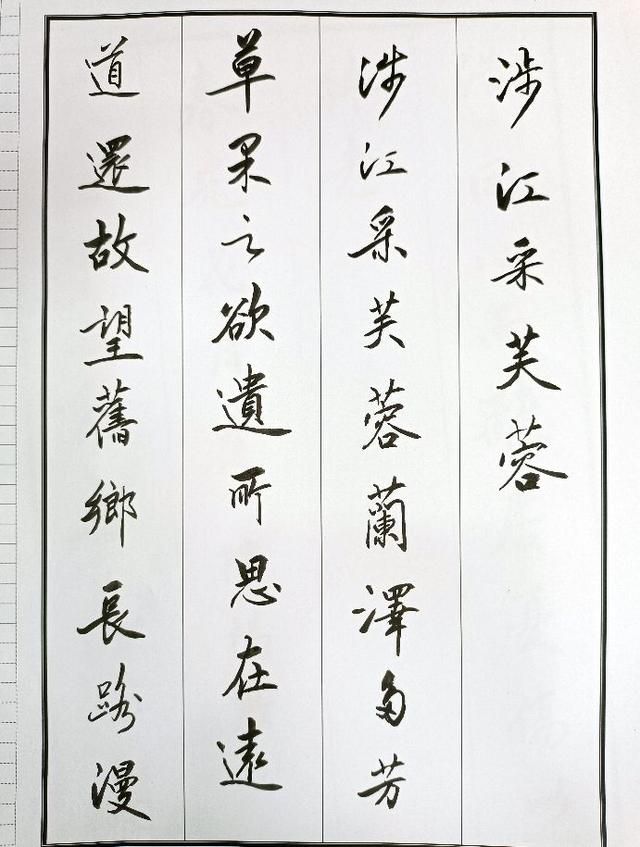 涉江采芙蓉
涉江采芙蓉蘭澤多芳
草果之欲遺所思在遠
道還故望舊鄉長路漫